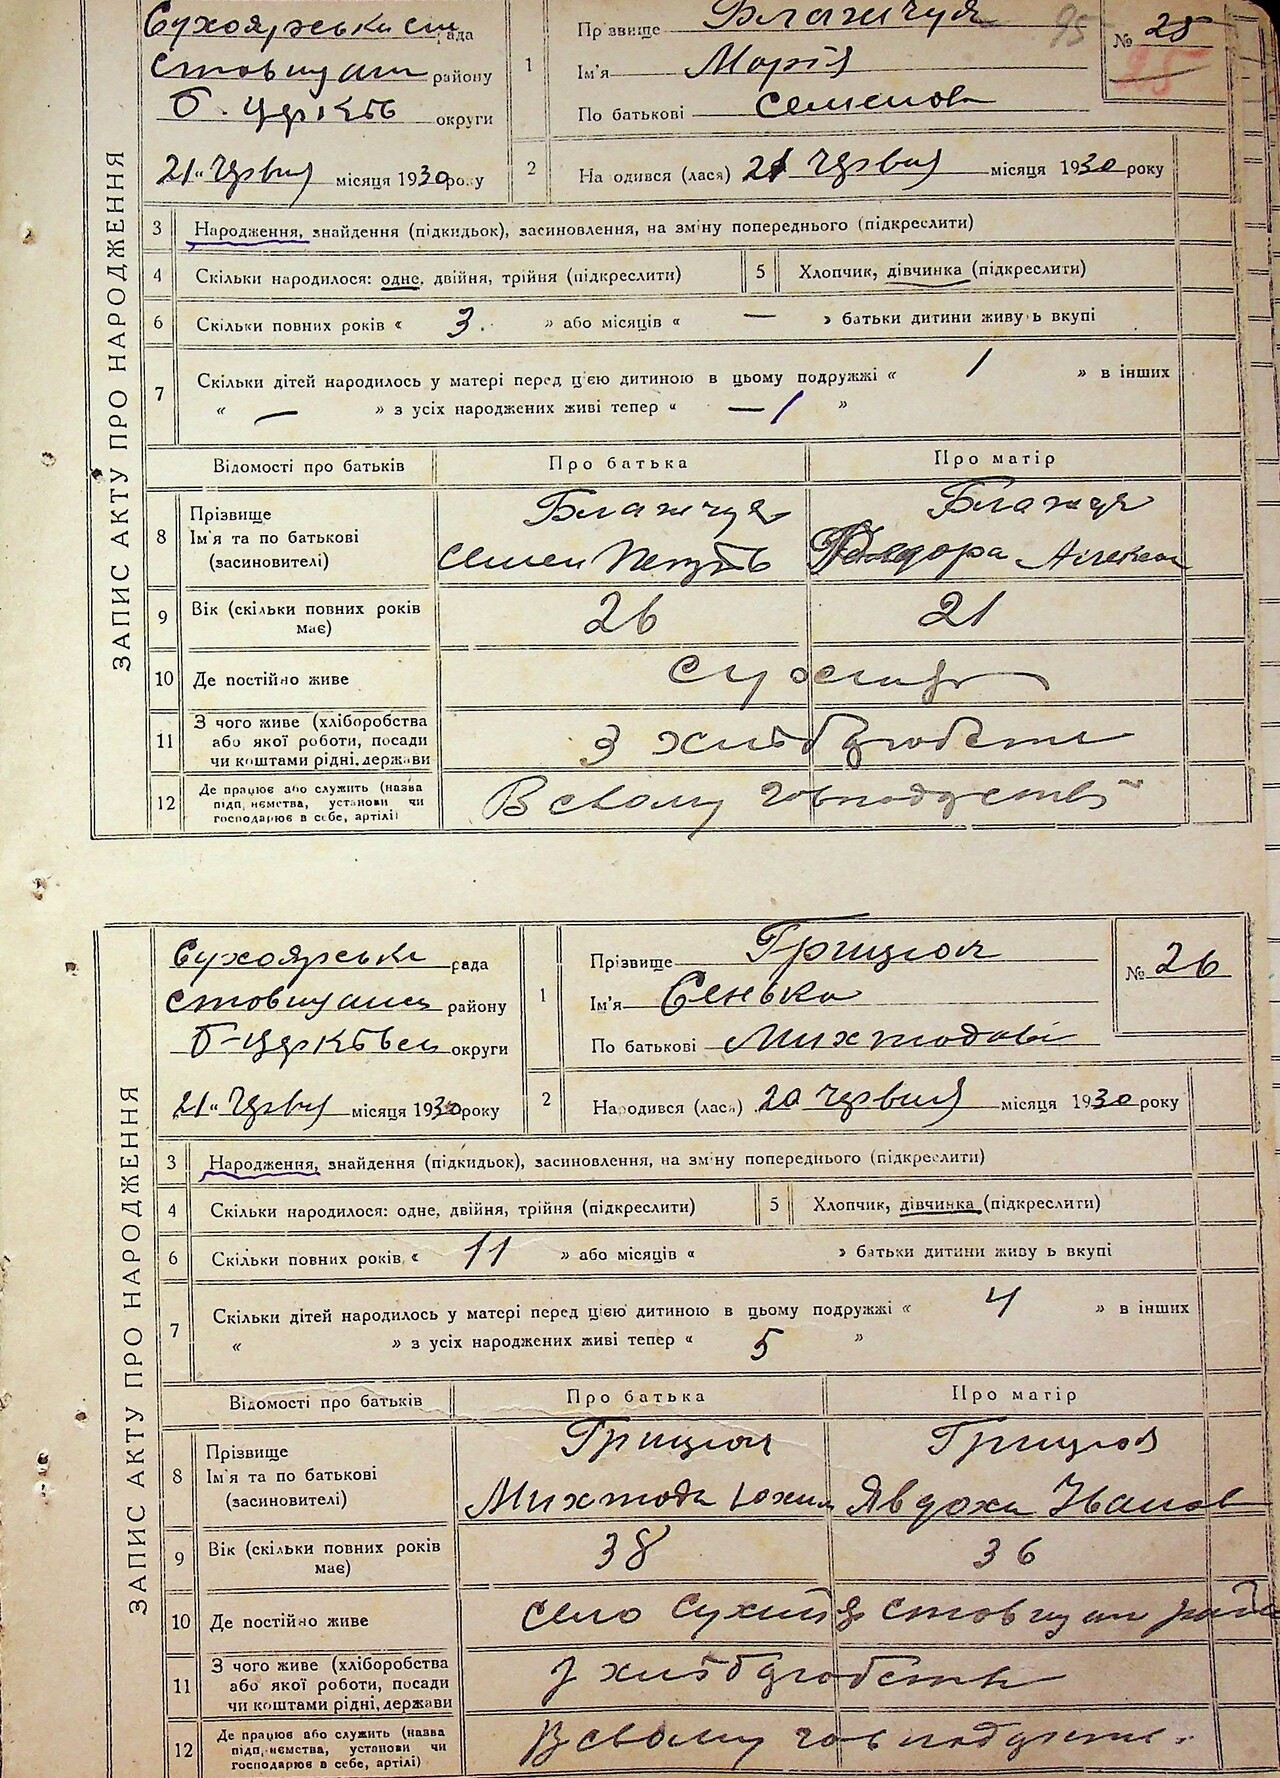 ЗАПИС АКТУ ПРО НАРОДЖЕННЯ
Сухоярська сіл рада
Ставищан району
Б. Церків округи
21 " Червня місяця 1930 року
1
Прізвище Блажчук
Ім'я Марія
По батькові Семенов
95 № 25
25
2 Народився (лася) 21 Червня місяця 1930 року
3 Народження, знайдення (підкидьок), засиновлення, на зміну попереднього (підкреслити)
4 Скільки народилося: одне, двійня, трійня (підкреслити) 5 Хлопчик, дівчинка (підкреслити)
6 Скільки повних років « 3. » або місяців « — » батьки дитини живуть вкупі
7 Скільки дітей народилось у матері перед цією дитиною в цьому подружжі « 1 » в інших
« — » з усіх народжених живі тепер « — 1 »
Відомості про батьків Про батька Про матір
8 Прізвище
Ім'я та по батькові
(засиновителі)
Блажчук Блажчук
Семен Федора Алексан
9 Вік (скільки повних років має) 26 21
10 Де постійно живе
11 З чого живе (хліборобства
або якої роботи, посади
чи коштами рідні, держави
З хліборобства
12 Де працює або служить (назва
підприємства, установи чи
господарює в себе, артілі)
В своому господарстві
ЗАПИС АКТУ ПРО НАРОДЖЕННЯ
Сухоярська рада
Ставищан району
Б-Церківськ округи
21 " Червня місяця 1930 року
1
Прізвище Грицюк
Ім'я Сенька
По батькові Михтодові
№ 26
2 Народився (лася) 20 Червня місяця 1930 року
3 Народження, знайдення (підкидьок), засиновлення, на зміну попереднього (підкреслити)
4 Скільки народилося: одне, двійня, трійня (підкреслити) 5 Хлопчик, дівчинка (підкреслити)
6 Скільки повних років « 11 » або місяців « » батьки дитини живуть вкупі
7 Скільки дітей народилось у матері перед цією дитиною в цьому подружжі « 4 » в інших
« » з усіх народжених живі тепер « 5 »
Відомості про батьків Про батька Про матір
8 Прізвище
Ім'я та по батькові
(засиновителі)
Грицюк Грицюк
Михтода Юхим Явдоха Іванов
9 Вік (скільки повних років має) 38 36
10 Де постійно живе село Сухий Яр Ставищан район
11 З чого живе (хліборобства
або якої роботи, посади
чи коштами рідні, держави
З хліборобства
12 Де працює або служить (назва
підприємства, установи чи
господарює в себе, артілі)
В своому господарстві